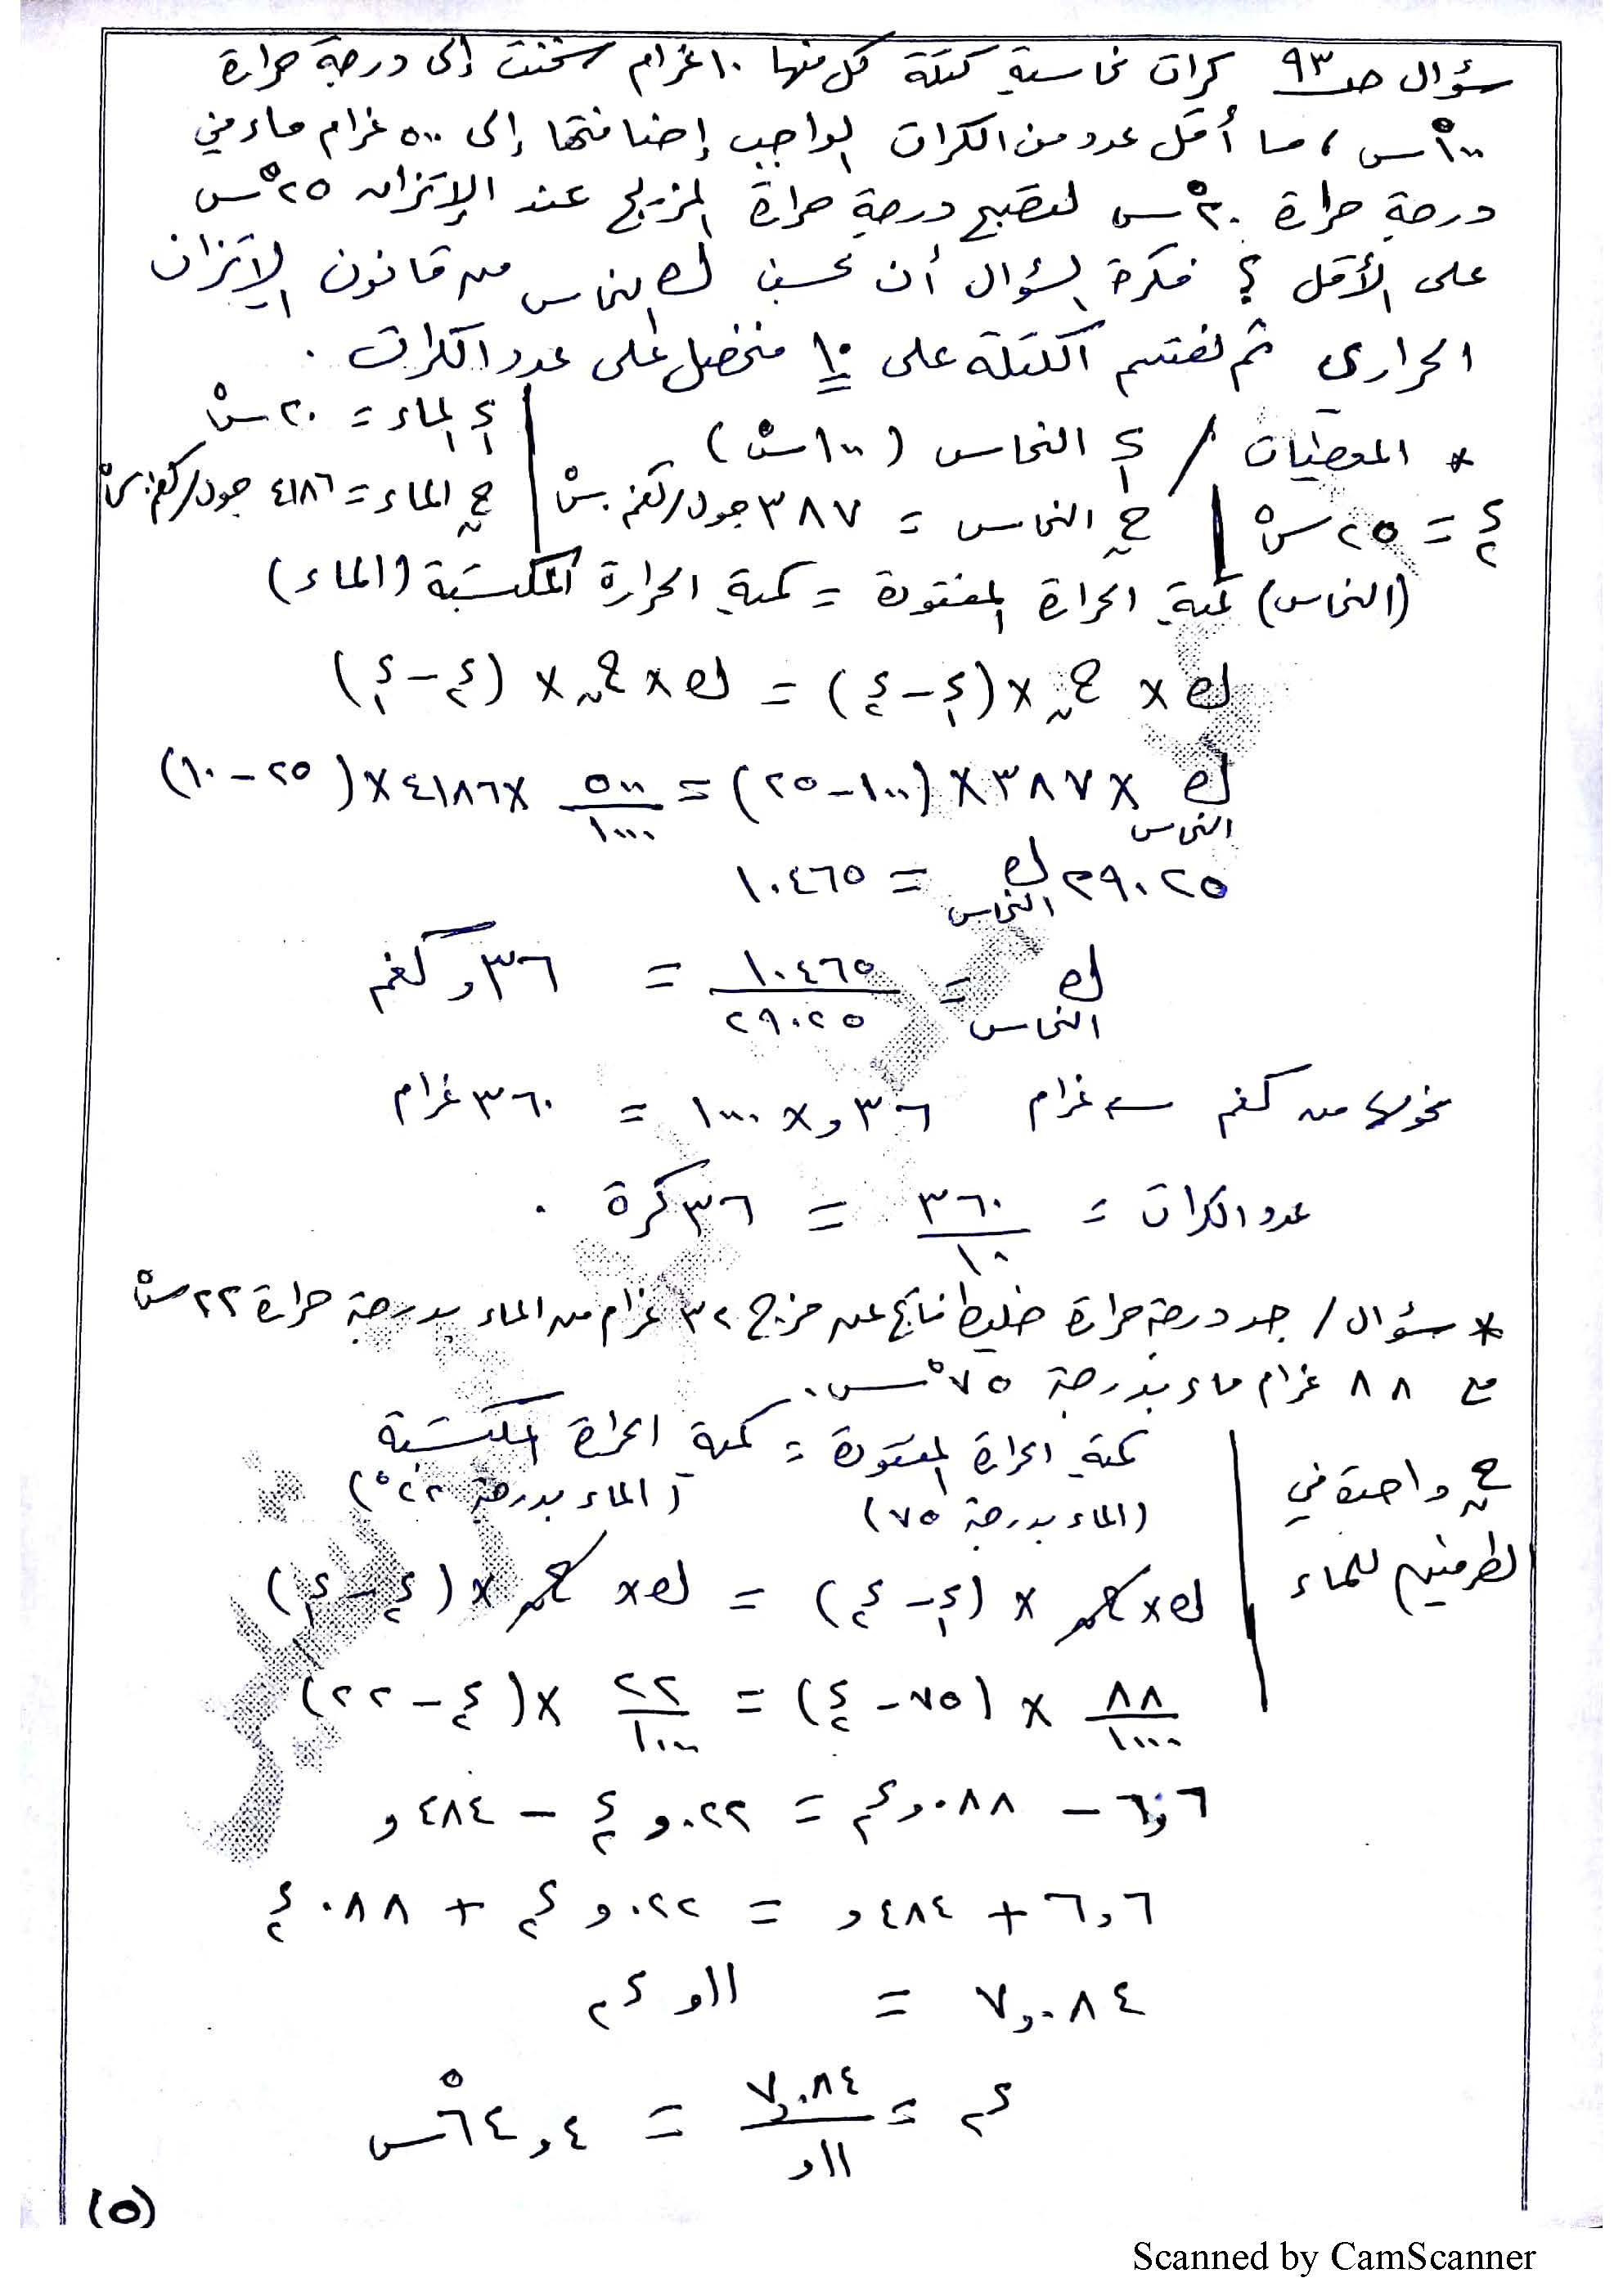 سؤال صـ ٩٣ كرات نحاسية كتلة كل منها ١٠ غرام سخنت إلى درجة حرارة
١٠٠°س ، ما أقل عدد من الكرات الواجب إضافتها إلى ٥٠٠ غرام ماء في
درجة حرارة ٢٠°س لتصبح درجة حرارة المزيج عند الإتزان ٢٥°س
على الأقل ؟ فكرة السؤال أن نحسب ك النحاس من قانون الإتزان
الحراري ثم نقسم الكتلة على ١٠ فنحصل على عدد الكرات .
* المعطيات / د١ النحاس (١٠٠°س) | د١ الماء = ٢٠°س
د٢ = ٢٥°س | حن النحاس = ٣٨٧ جول/كغم.°س | حن الماء = ٤١٨٦ جول/كغم.°س
(النحاس) كمية الحرارة المفقودة = كمية الحرارة المكتسبة (الماء)
ك × حن × (د١ - د٢) = ك × حن × (د٢ - د١)
ك النحاس × ٣٨٧ × (١٠٠ - ٢٥) = ٥٠٠/١٠٠٠ × ٤١٨٦ × (٢٥ - ١٠)
٢٩٠٢٥ ك النحاس = ١٠٤٦٥
ك النحاس = ١٠٤٦٥/٢٩٠٢٥ = ٣٦و كغم
نحولها من كغم ← غرام ٣٦و × ١٠٠٠ = ٣٦٠ غرام
عدد الكرات = ٣٦٠/١٠ = ٣٦ كرة .
* سؤال / جد درجة حرارة خليط ناتج عن مزج ٣٢ غرام من الماء بدرجة حرارة ٢٢°س
مع ٨٨ غرام ماء بدرجة ٧٥°س.
كمية الحرارة المفقودة = كمية الحرارة المكتسبة
(الماء بدرجة ٧٥) (الماء بدرجة ٢٢°)
حن واحدة في
الطرفين للماء
ك × حن × (د١ - د٢) = ك × حن × (د٢ - د١)
٨٨/١٠٠٠ × (٧٥ - د٢) = ٢٢/١٠٠٠ × (د٢ - ٢٢)
٦,٦ - ٠٨٨و د٢ = ٠٢٢و د٢ - ٤٨٤و
٦,٦ + ٤٨٤و = ٠٢٢و د٢ + ٠٨٨ د٢
٧,٠٨٤ = ١١و د٢
د٢ = ٧,٠٨٤/١١و = ٦٤,٤°س
(٥)
Scanned by CamScanner